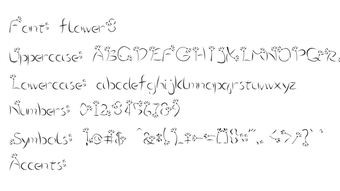 Font: flowers
Uppercase: ABCDEFGHIJKLMNOPQR
Lowercase: abcdefghijklmnopqrstuvwxyz
Numbers: 0123456789
Symbols: !@#$ ^&*()_+-=[]{}:"., <>/?`
Accents: